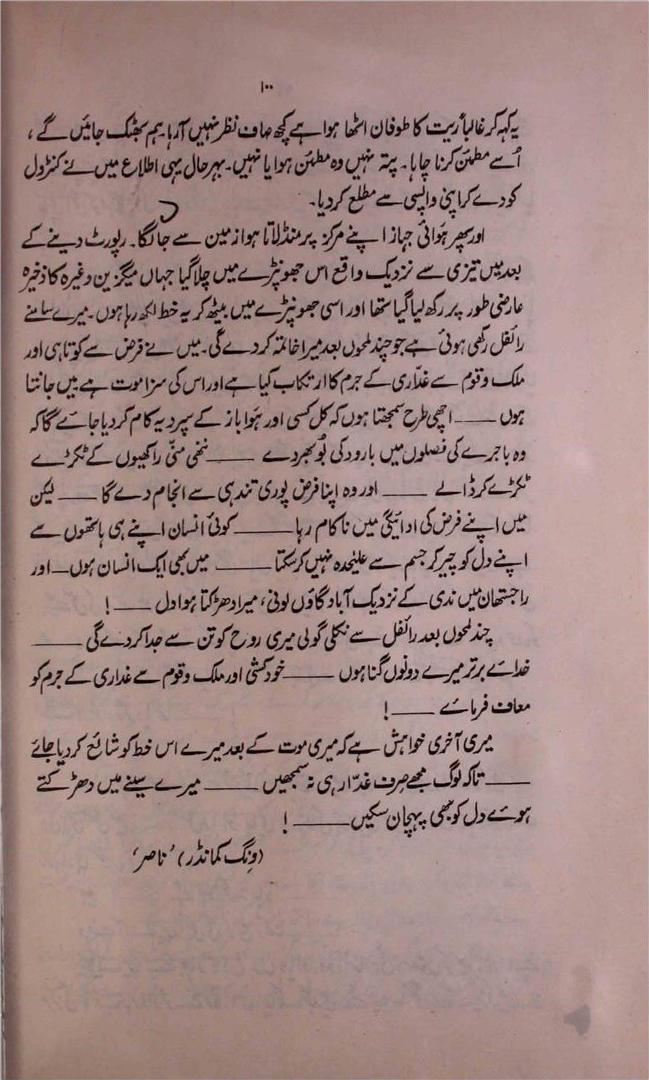 ۱۰۰
یہ کہہ کر غالباً ریت کا طوفان اٹھا ہوا ہے کچھ صاف نظر نہیں آرہا ہم بھٹک جائیں گے ،
اُسے مطمئن کرنا چاہا۔ پتہ نہیں وہ مطمئن ہوا یا نہیں۔ بہرحال یہی اطلاع میں نے کنٹرول
کو دے کر اپنی واپسی سے مطلع کر دیا۔
اور پھر ہوائی جہاز اپنے مرکز پر منڈلاتا ہوا زمین سے جا لگا۔ رپورٹ دینے کے
بعد میں تیزی سے نزدیک واقع اس جھونپڑے میں چلا گیا جہاں میگزین وغیرہ کا ذخیرہ
عارضی طور پر رکھ لیا گیا تھا اور اسی جھونپڑے میں بیٹھ کر یہ خط لکھ رہا ہوں۔ میرے سامنے
رائفل رکھی ہوئی ہے جو چند لمحوں بعد میرا خاتمہ کر دے گی۔ میں نے فرض سے کوتاہی اور
ملک و قوم سے غدّاری کے جرم کا ارتکاب کیا ہے اور اس کی سزا موت ہے میں جانتا
ہوں ـــــ اچھی طرح سمجھتا ہوں کہ کل کسی اور ہوا باز کے سپرد یہ کام کر دیا جائے گا کہ
وہ باجرے کی فصلوں میں بارود کی بُو بھر دے ـــــ ننھی منّی راکھیوں کے ٹکڑے
ٹکڑے کر ڈالے ـــــ اور وہ اپنا فرض پوری تندہی سے انجام دے گا ـــــ لیکن
میں اپنے فرض کی ادائیگی میں ناکام رہا ـــــ کوئی انسان اپنے ہی ہاتھوں سے
اپنے دل کو چیر کر جسم سے علیٰحدہ نہیں کر سکتا ـــــ میں بھی ایک انسان ہوں ـــ اور
راجستھان میں ندی کے نزدیک آباد گاؤں لونی، میرا دھڑکتا ہوا دل ـــــ !
چند لمحوں بعد رائفل سے نکلی گولی میری روح کو تن سے جدا کر دے گی ـــــ
خدائے برتر میرے دونوں گناہوں ـــــ خودکشی اور ملک و قوم سے غداری کے جرم کو
معاف فرمائے ـــــ !
میری آخری خواہش ہے کہ میری موت کے بعد میرے اس خط کو شائع کر دیا جائے
ـــــ تاکہ لوگ مجھے صرف غدّار ہی نہ سمجھیں ـــــ میرے سینے میں دھڑکتے
ہوئے دل کو بھی پہچان سکیں ـــــ !
(ونگ کمانڈر) ’ناصر‘